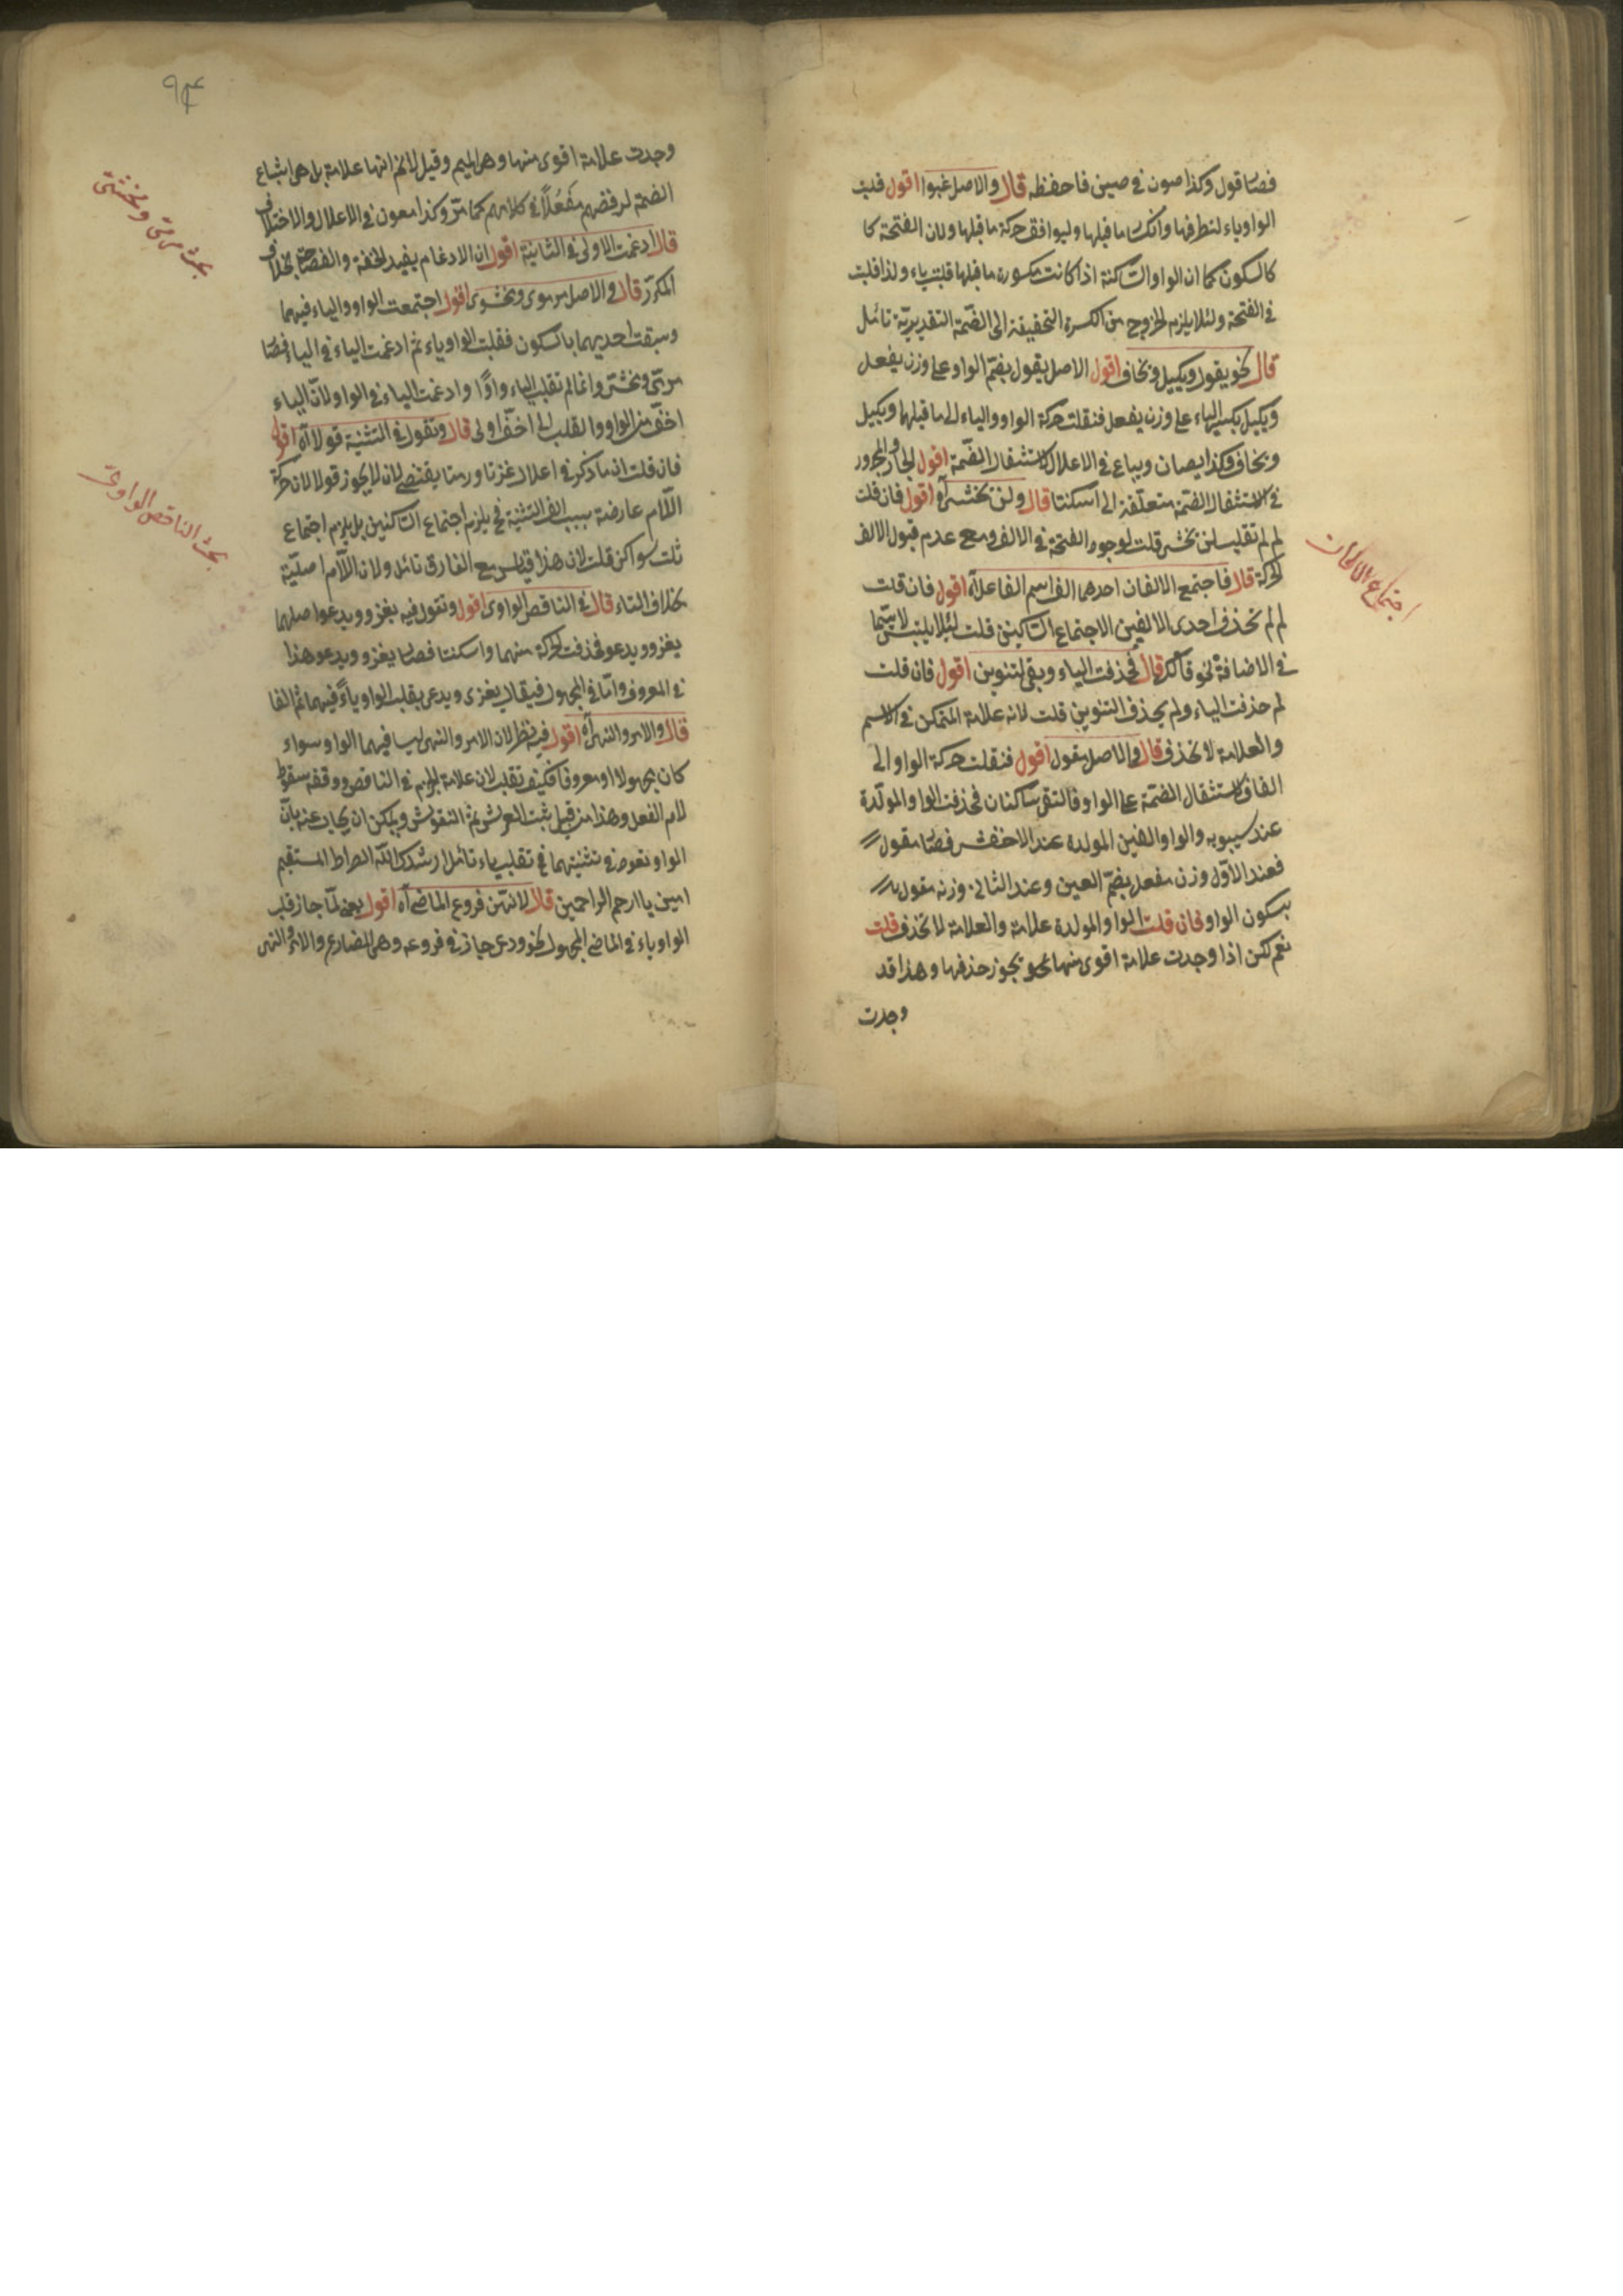 فصار قول وكذا صون في صين فاحفظه قال والاصل غبوا اقول قلبت
الواو ياء لتطرفها وانكسار ما قبلها وليوافق حركة ما قبلها ولان الفتحة كا
كالسكون كما ان الواو الساكنة اذا كانت مكسورة ما قبلها قلبت ياء ولذا قلبت
في الفتحة ولئلا يلزم الخروج من الكسرة التحقيقة الى الضمة التقديرية تأمل
قال نحو يقول ويكيل ويخاف اقول الاصل يقول بضم الواو على وزن يفعل
ويكيل بكسر الياء على وزن يفعل فنقلت حركة الواو والياء الى ما قبلها ويكيل
ويخاف وكذا يصان ويباع في الاعلال قال لاستثقال الضمة اقول الجار والمجرور
في لاستثقال الضمة متعلقة الى اسكنتا قال ولن يخشى آه اقول فان قلت
لم لم تقلب لن يخشى قلت لوجود الفتحة في الالف ومع عدم قبول الالف
الحركة قال فاجتمع الالفان احدهما الف اسم الفاعل آه اقول فان قلت
لم لم تحذف احدى الالفين الاجتماع الساكنين قلت لئلا يلتبس لا سيما
في الاضافة نحو قالك قال فحذفت الياء وبقي التنوين اقول فان قلت
لم حذفت الياء ولم يحذف التنوين قلت لانه علامة المتمكن في الاسم
والعلامة لا تحذف قال والاصل مقول اقول فنقلت حركة الواو الى
القاف لاستثقال الضمة على الواو فالتقى ساكنان فحذفت الواو المولدة
عند سيبويه والواو العين المولدة عند الاخفش فصار مقول
فعند الاول وزن مفعل بضم العين وعند الثاني وزنه مقول
بسكون الواو فان قلت الواو المولدة علامة والعلامة لا تحذف قلت
نعم لكن اذا وجدت علامة اقوى منها يجوز حذفها وهذا قد
وجدت
اجتماع الالفان
٩٤
وجدت علامة اقوى منها وهي الميم وقيل لا نم انها علامة بل هي اشباع
الضمة لرفضهم مَفْعُلًا في كلامهم كما مر وكذا معون في الاعلال والاختلاف
قال ادغمت الاولى في الثانية اقول ان الادغام يفيد الخفة والفصاحة بخلاف
المكرر قال والاصل مرموى ومخشوى اقول اجتمعت الواو والياء فيهما
وسبقت احديهما بالسكون فقلبت الواو ياء ثم ادغمت الياء في الياء فصار
مرمي ومخشي وانما لم تقلب الياء واوًا وادغمت الياء في الواو لان الياء
اخف من الواو والقلب الى اخف اولى قال وتقول في التثنية قولا آه اقول
فان قلت ان ما ذكر في اعلال غزتا ورمتا يقتضي لان لا يجوز قولا لان حركة
اللام عارضة بسبب الف التثنية فح يلزم اجتماع الساكنين بل يلزم اجتماع
ثلث سواكن قلت لان هذا قياس مع الفارق تأمل ولان اللام اصلية
بخلاف التاء قال في الناقص الواوى اقول وتقول فيه يغزو ويدعو اصلهما
يغزو ويدعو فحذفت الحركة منهما واسكنتا فصار يغزو ويدعو هذا
في المعروف واما في المجهول فيقال يغزى ويدعى بقلب الواو ياءً فيهما ثم الفا
قال والامر والنهي آه اقول فيه نظر لان الامر والنهي ليس فيهما الواو سواء
كان مجهولا او معروفا فكيف تقلب لان علامة الجزم في الناقص ووقفه سقوط
لام الفعل وهذا من قبيل ثبت العرش ثم النقوش ويمكن ان يجاب عنه بان
الواو تعود في تثنيتهما فح تقلب ياء تأمل ارشدك الله الصراط المستقيم
امين يا ارحم الراحمين قال لانهن فروع الماضي آه اقول يعني لما جاز قلب
الواو ياء في الماضي المجهول نحو دعي جاز في فروعه وهي المضارع والامر والنهي
بحث مرمي ومخشي
بحث الناقص الواوى